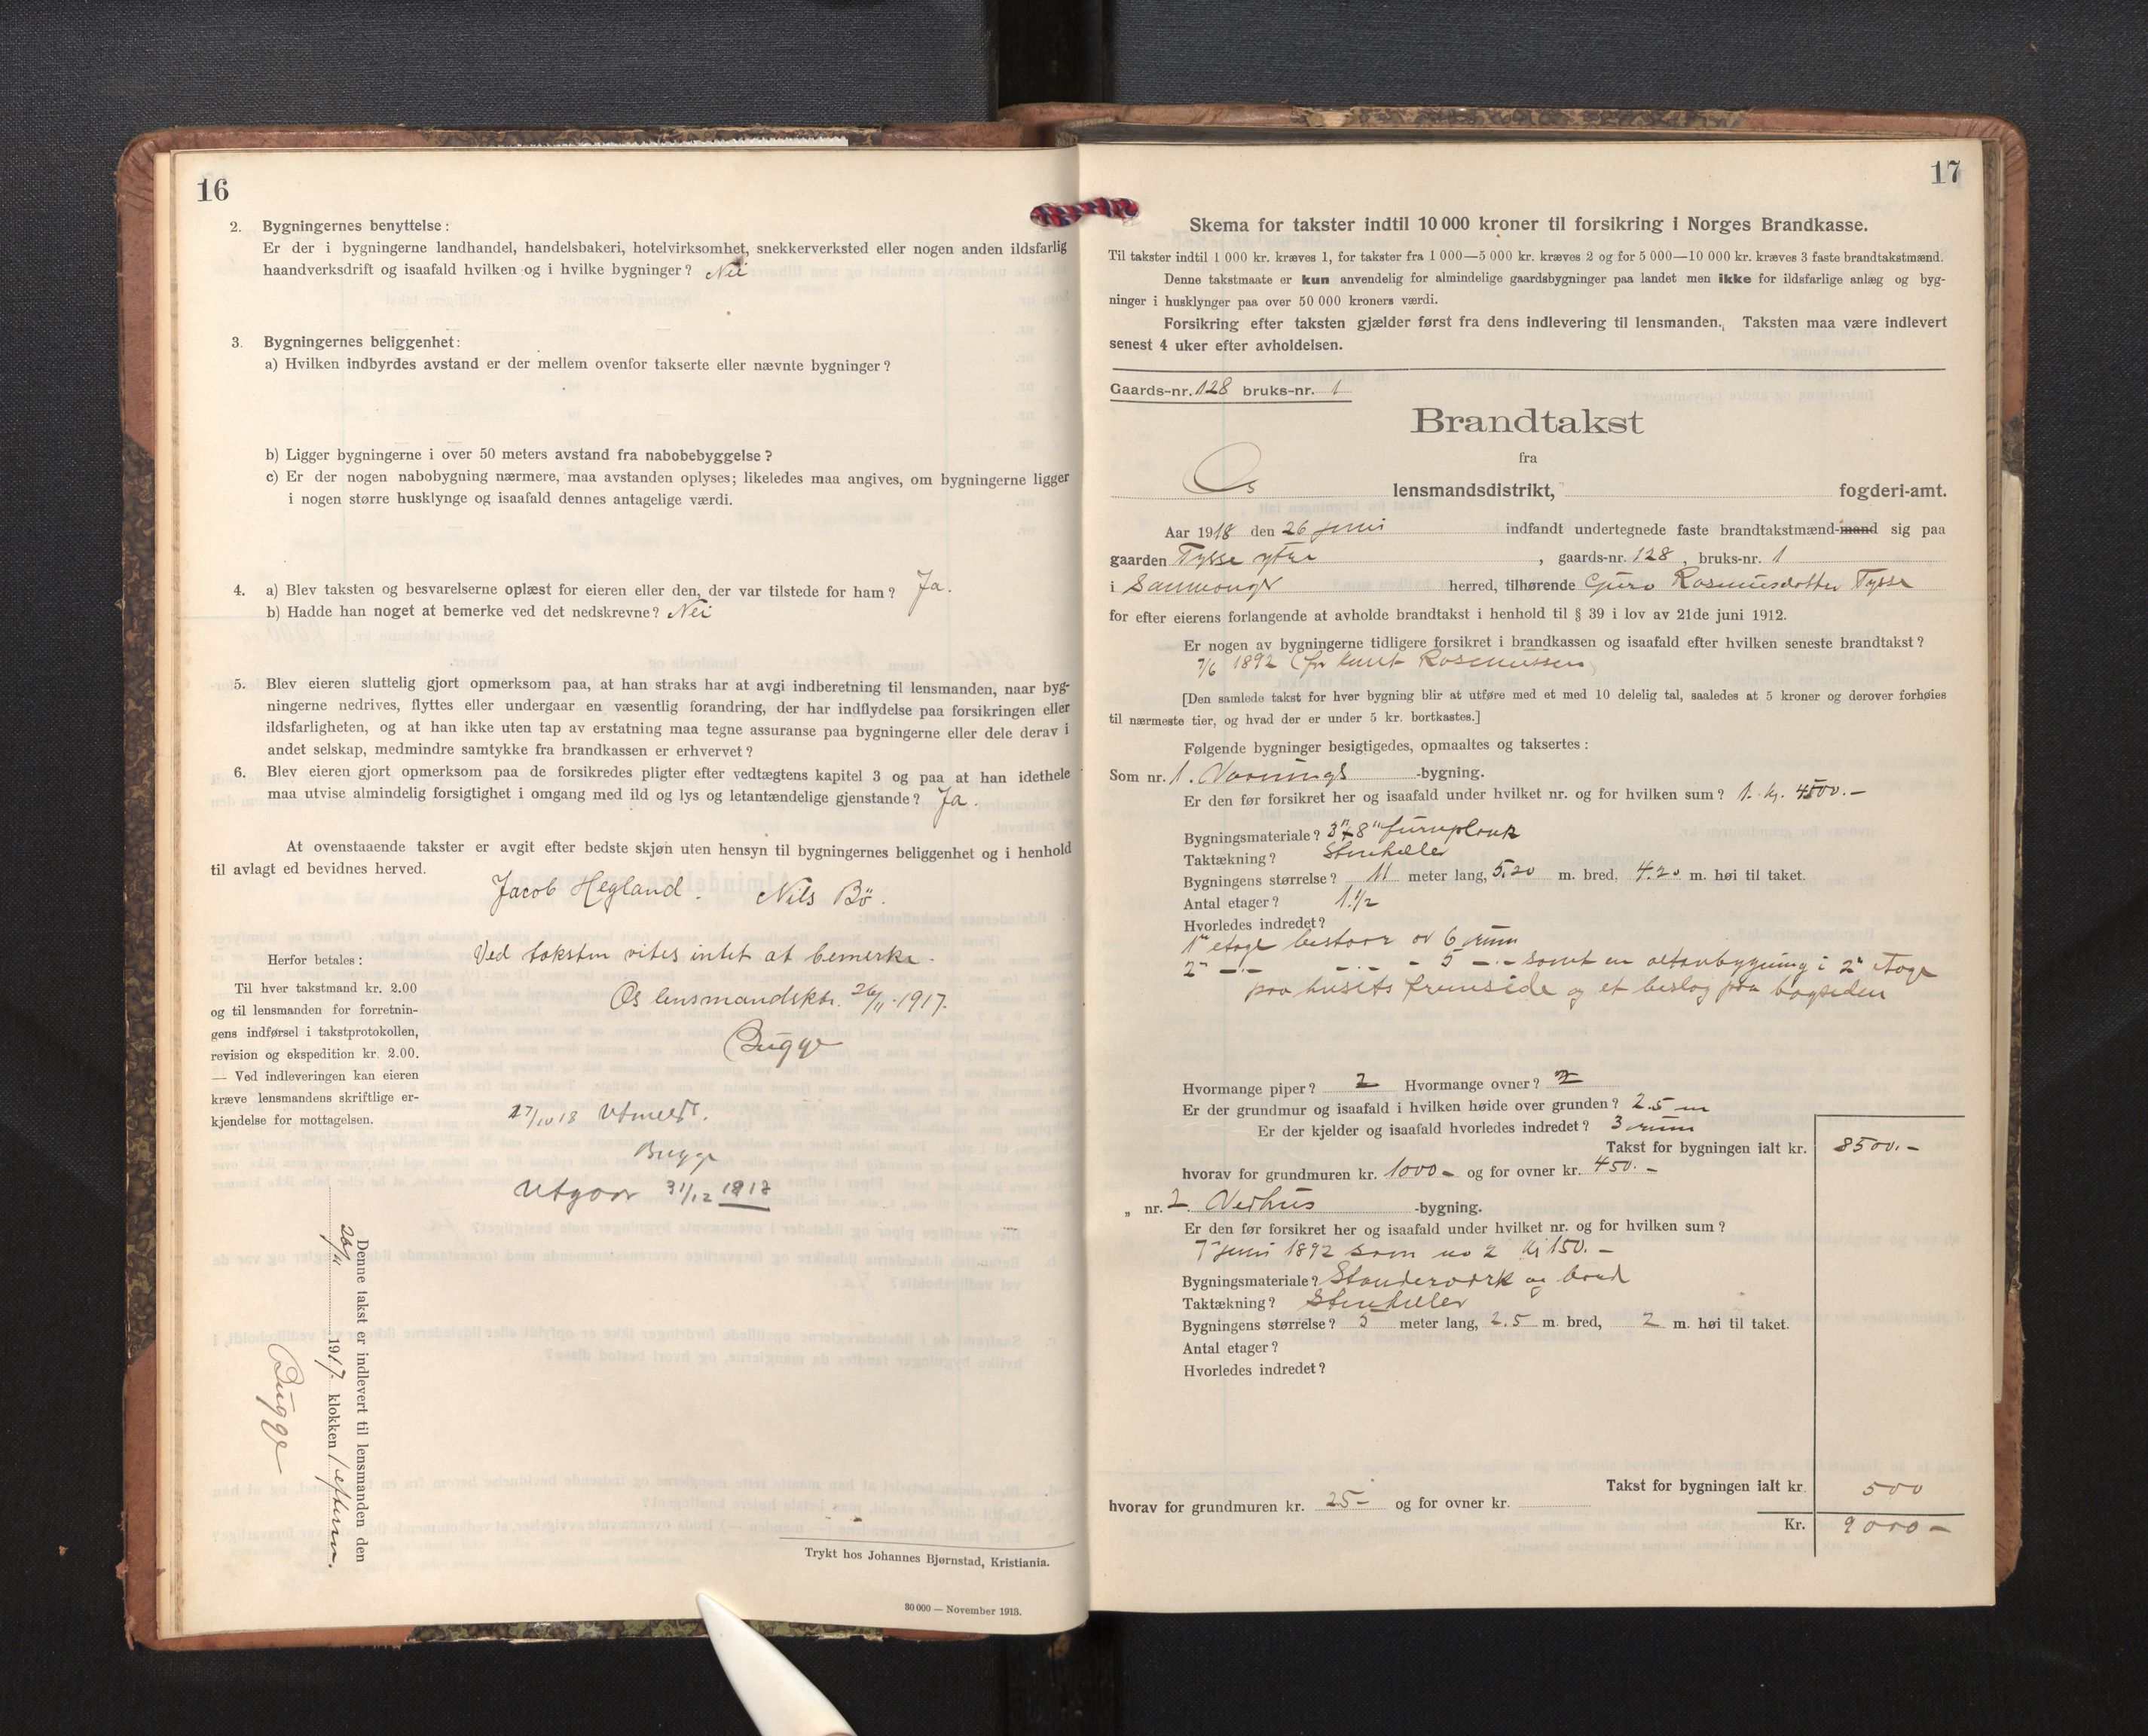 16
2. Bygningernes benyttelse:
Er der i bygningerne landhandel, handelsbakeri, hotelvirksomhet, snekkerverksted eller nogen anden ildsfarlig
haandverksdrift og isaafald hvilken og i hvilke bygninger? Nei
3. Bygningernes beliggenhet:
a) Hvilken indbyrdes avstand er der mellem ovenfor takserte eller nævnte bygninger?
b) Ligger bygningerne i over 50 meters avstand fra nabobebyggelse?
c) Er der nogen nabobygning nærmere, maa avstanden oplyses; likeledes maa angives, om bygningerne ligger
i nogen større husklynge og isaafald dennes antagelige værdi.
4. a) Blev taksten og besvarelserne oplæst for eieren eller den, der var tilstede for ham? Ja.
b) Hadde han noget at bemerke ved det nedskrevne? Nei
5. Blev eieren sluttelig gjort opmerksom paa, at han straks har at avgi indberetning til lensmanden, naar byg-
ningerne nedrives, flyttes eller undergaar en væsentlig forandring, der har indflydelse paa forsikringen eller
ildsfarligheten, og at han ikke uten tap av erstatning maa tegne assuranse paa bygningerne eller dele derav i
andet selskap, medmindre samtykke fra brandkassen er erhvervet?
6. Blev eieren gjort opmerksom paa de forsikredes pligter efter vedtægtens kapitel 3 og paa at han idethele
maa utvise almindelig forsigtighet i omgang med ild og lys og letantændelige gjenstande? Ja.
At ovenstaaende takster er avgit efter bedste skjøn uten hensyn til bygningernes beliggenhet og i henhold
til avlagt ed bevidnes herved.
Jacob Hegland. Nils Bö.
Ved taksten vites intet at bemerke.
Os lensmandsktr. 26/11 1917.
Bugge
Herfor betales:
Til hver takstmand kr. 2.00
og til lensmanden for forretnin-
gens indførsel i takstprotokollen,
revision og ekspedition kr. 2.00.
— Ved indleveringen kan eieren
kræve lensmandens skriftlige er-
kjendelse for mottagelsen.
27/10 18 Utmeldt.
Bugge
Utgaar 31/12 1918
Denne takst er indlevert til lensmanden den
26/11 1917. klokken 1 efterm.
Bugge
Trykt hos Johannes Bjørnstad, Kristiania.
30 000 — November 1913.
17
Skema for takster indtil 10 000 kroner til forsikring i Norges Brandkasse.
Til takster indtil 1 000 kr. kræves 1, for takster fra 1 000—5 000 kr. kræves 2 og for 5 000—10 000 kr. kræves 3 faste brandtakstmænd.
Denne takstmaate er kun anvendelig for almindelige gaardsbygninger paa landet men ikke for ildsfarlige anlæg og byg-
ninger i husklynger paa over 50 000 kroners værdi.
Forsikring efter taksten gjælder først fra dens indlevering til lensmanden. Taksten maa være indlevert
senest 4 uker efter avholdelsen.
Gaards-nr. 128 bruks-nr. 1
Brandtakst
fra
Os lensmandsdistrikt, fogderi-amt.
Aar 1918 den 26 juni indfandt undertegnede faste brandtakstmænd-mand sig paa
gaarden Tysse ytre, gaards-nr. 128, bruks-nr. 1
i Samnanger herred, tilhørende Guro Rasmusdatter Tysse
for efter eierens forlangende at avholde brandtakst i henhold til § 39 i lov av 21de juni 1912.
Er nogen av bygningerne tidligere forsikret i brandkassen og isaafald efter hvilken seneste brandtakst?
7/6 1892 (for Knut Rasmussen)
[Den samlede takst for hver bygning blir at utføre med et med 10 delelig tal, saaledes at 5 kroner og derover forhøies
til nærmeste tier, og hvad der er under 5 kr. bortkastes.]
Følgende bygninger besigtigedes, opmaaltes og taksertes:
Som nr. 1. Vaanings-bygning.
Er den før forsikret her og isaafald under hvilket nr. og for hvilken sum? 1. kr. 4500.-
Bygningsmateriale? 3"x8" furuplank
Taktækning? Stenheller
Bygningens størrelse? 11 meter lang, 5,20 m. bred, 4.20 m. høi til taket.
Antal etager? 1.1/2
Hvorledes indredet?
1ste etage bestaar av 6 rum
2en -"- -"- - 5 -"- samt en altanbygning i 2en etage
paa husets fremside og et beslag paa bagsiden
Hvormange piper? 2 Hvormange ovner? 7
Er der grundmur og isaafald i hvilken høide over grunden? 2.5 m
Er der kjelder og isaafald hvorledes indredet? 3 rum
Takst for bygningen ialt kr. 8500.-
hvorav for grundmuren kr. 1000- og for ovner kr. 450.-
„ nr. 2 Vedhus-bygning.
Er den før forsikret her og isaafald under hvilket nr. og for hvilken sum?
7 juni 1892 som no 2 kr 150.-
Bygningsmateriale? Standerværk og bord
Taktækning? Stenheller
Bygningens størrelse? 5 meter lang, 2.5 m. bred, 2 m. høi til taket.
Antal etager?
Hvorledes indredet?
Takst for bygningen ialt kr. 500
hvorav for grundmuren kr. 25- og for ovner kr.
Kr. 9000-